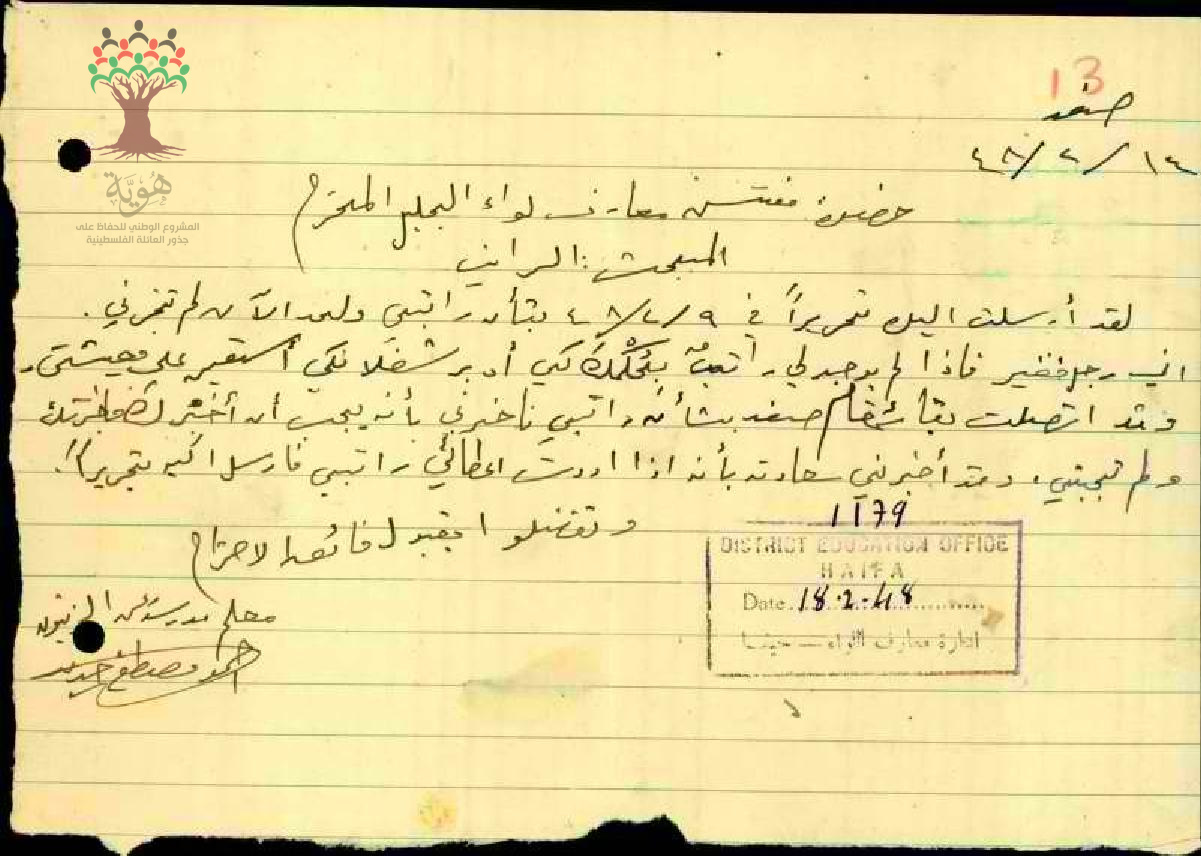 13
صفد
١٤/٢/٤٨
هُوِيَّة
المشروع الوطني للحفاظ على
جذور العائلة الفلسطينية
حضرة مفتش معارف لواء الجليل المحترم
المبحث: الراتب
لقد أرسلت اليك تحريراً في ٩/٢/٤٨ بشأن راتبي ولحد الآن لم تخبرني.
اني رجل فقير فاذا لم يوجد لي راتب كي أدبر شغلا لكي أستقيم على معيشتي
وقد اتصلت بقائمقام صفد بشأن راتبي فاخبرني بأنه يجب أن أخبر
ولم تجبني. وقد أخبرني سعادته بأنه اذا اردت اعطائي راتبي فارسل اليه تحريرا!
وتفضلوا بقبول فائق الاحترام
معلم مدرسة الزيتون
احمد مصطفى
1179
DISTRICT EDUCATION OFFICE
HAIFA
Date 18.2.48
ادارة معارف اللواء — حيفا